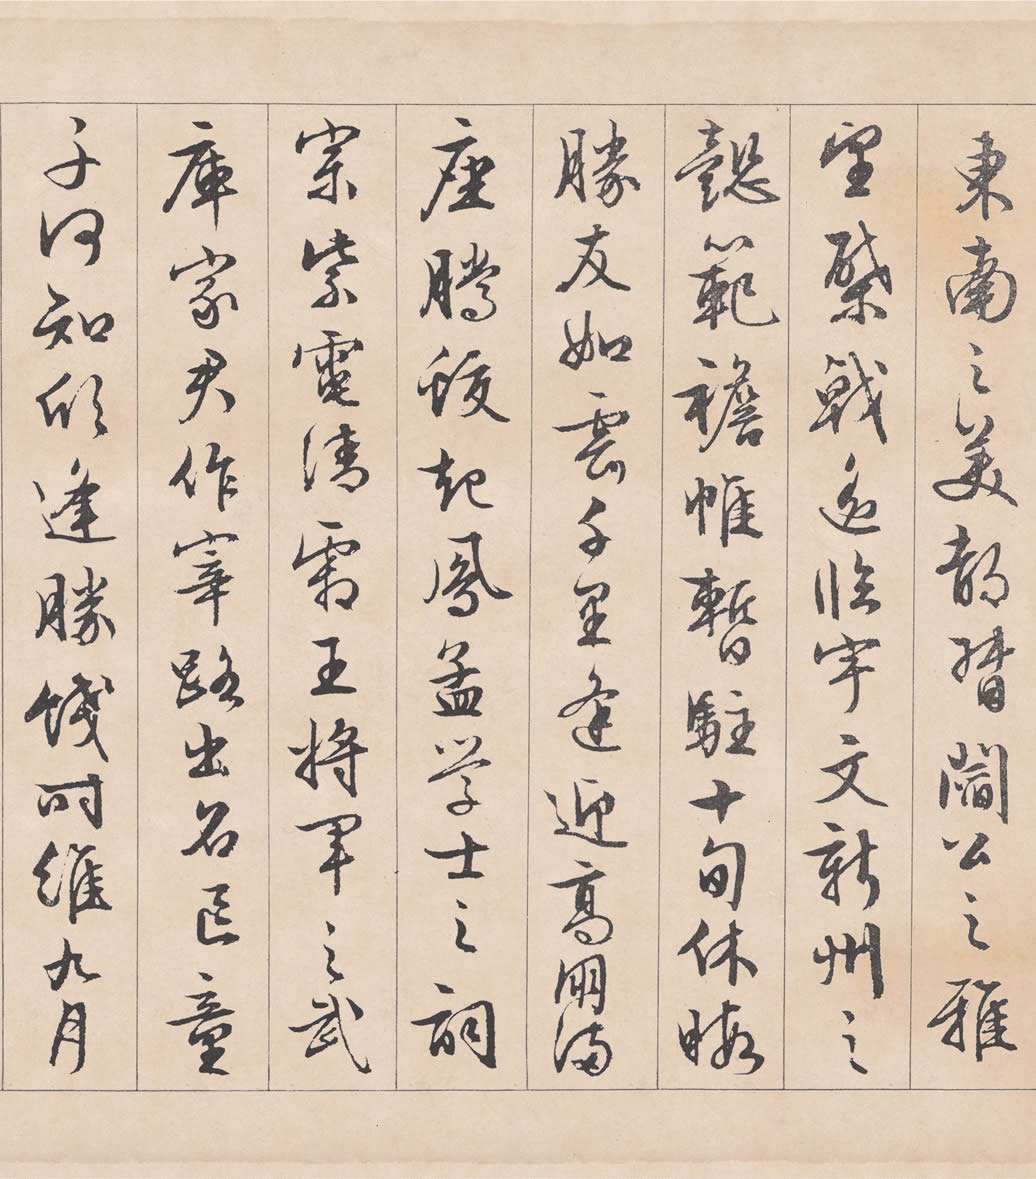 東南之美都督閻公之雅
望棨戟遥臨宇文新州之
懿範襜帷暫駐十旬休暇
勝友如雲千里逢迎高朋滿
座騰蛟起鳳孟学士之詞
宗紫電清霜王将軍之武
庫家君作宰路出名區童
子何知躬逢勝餞时維九月